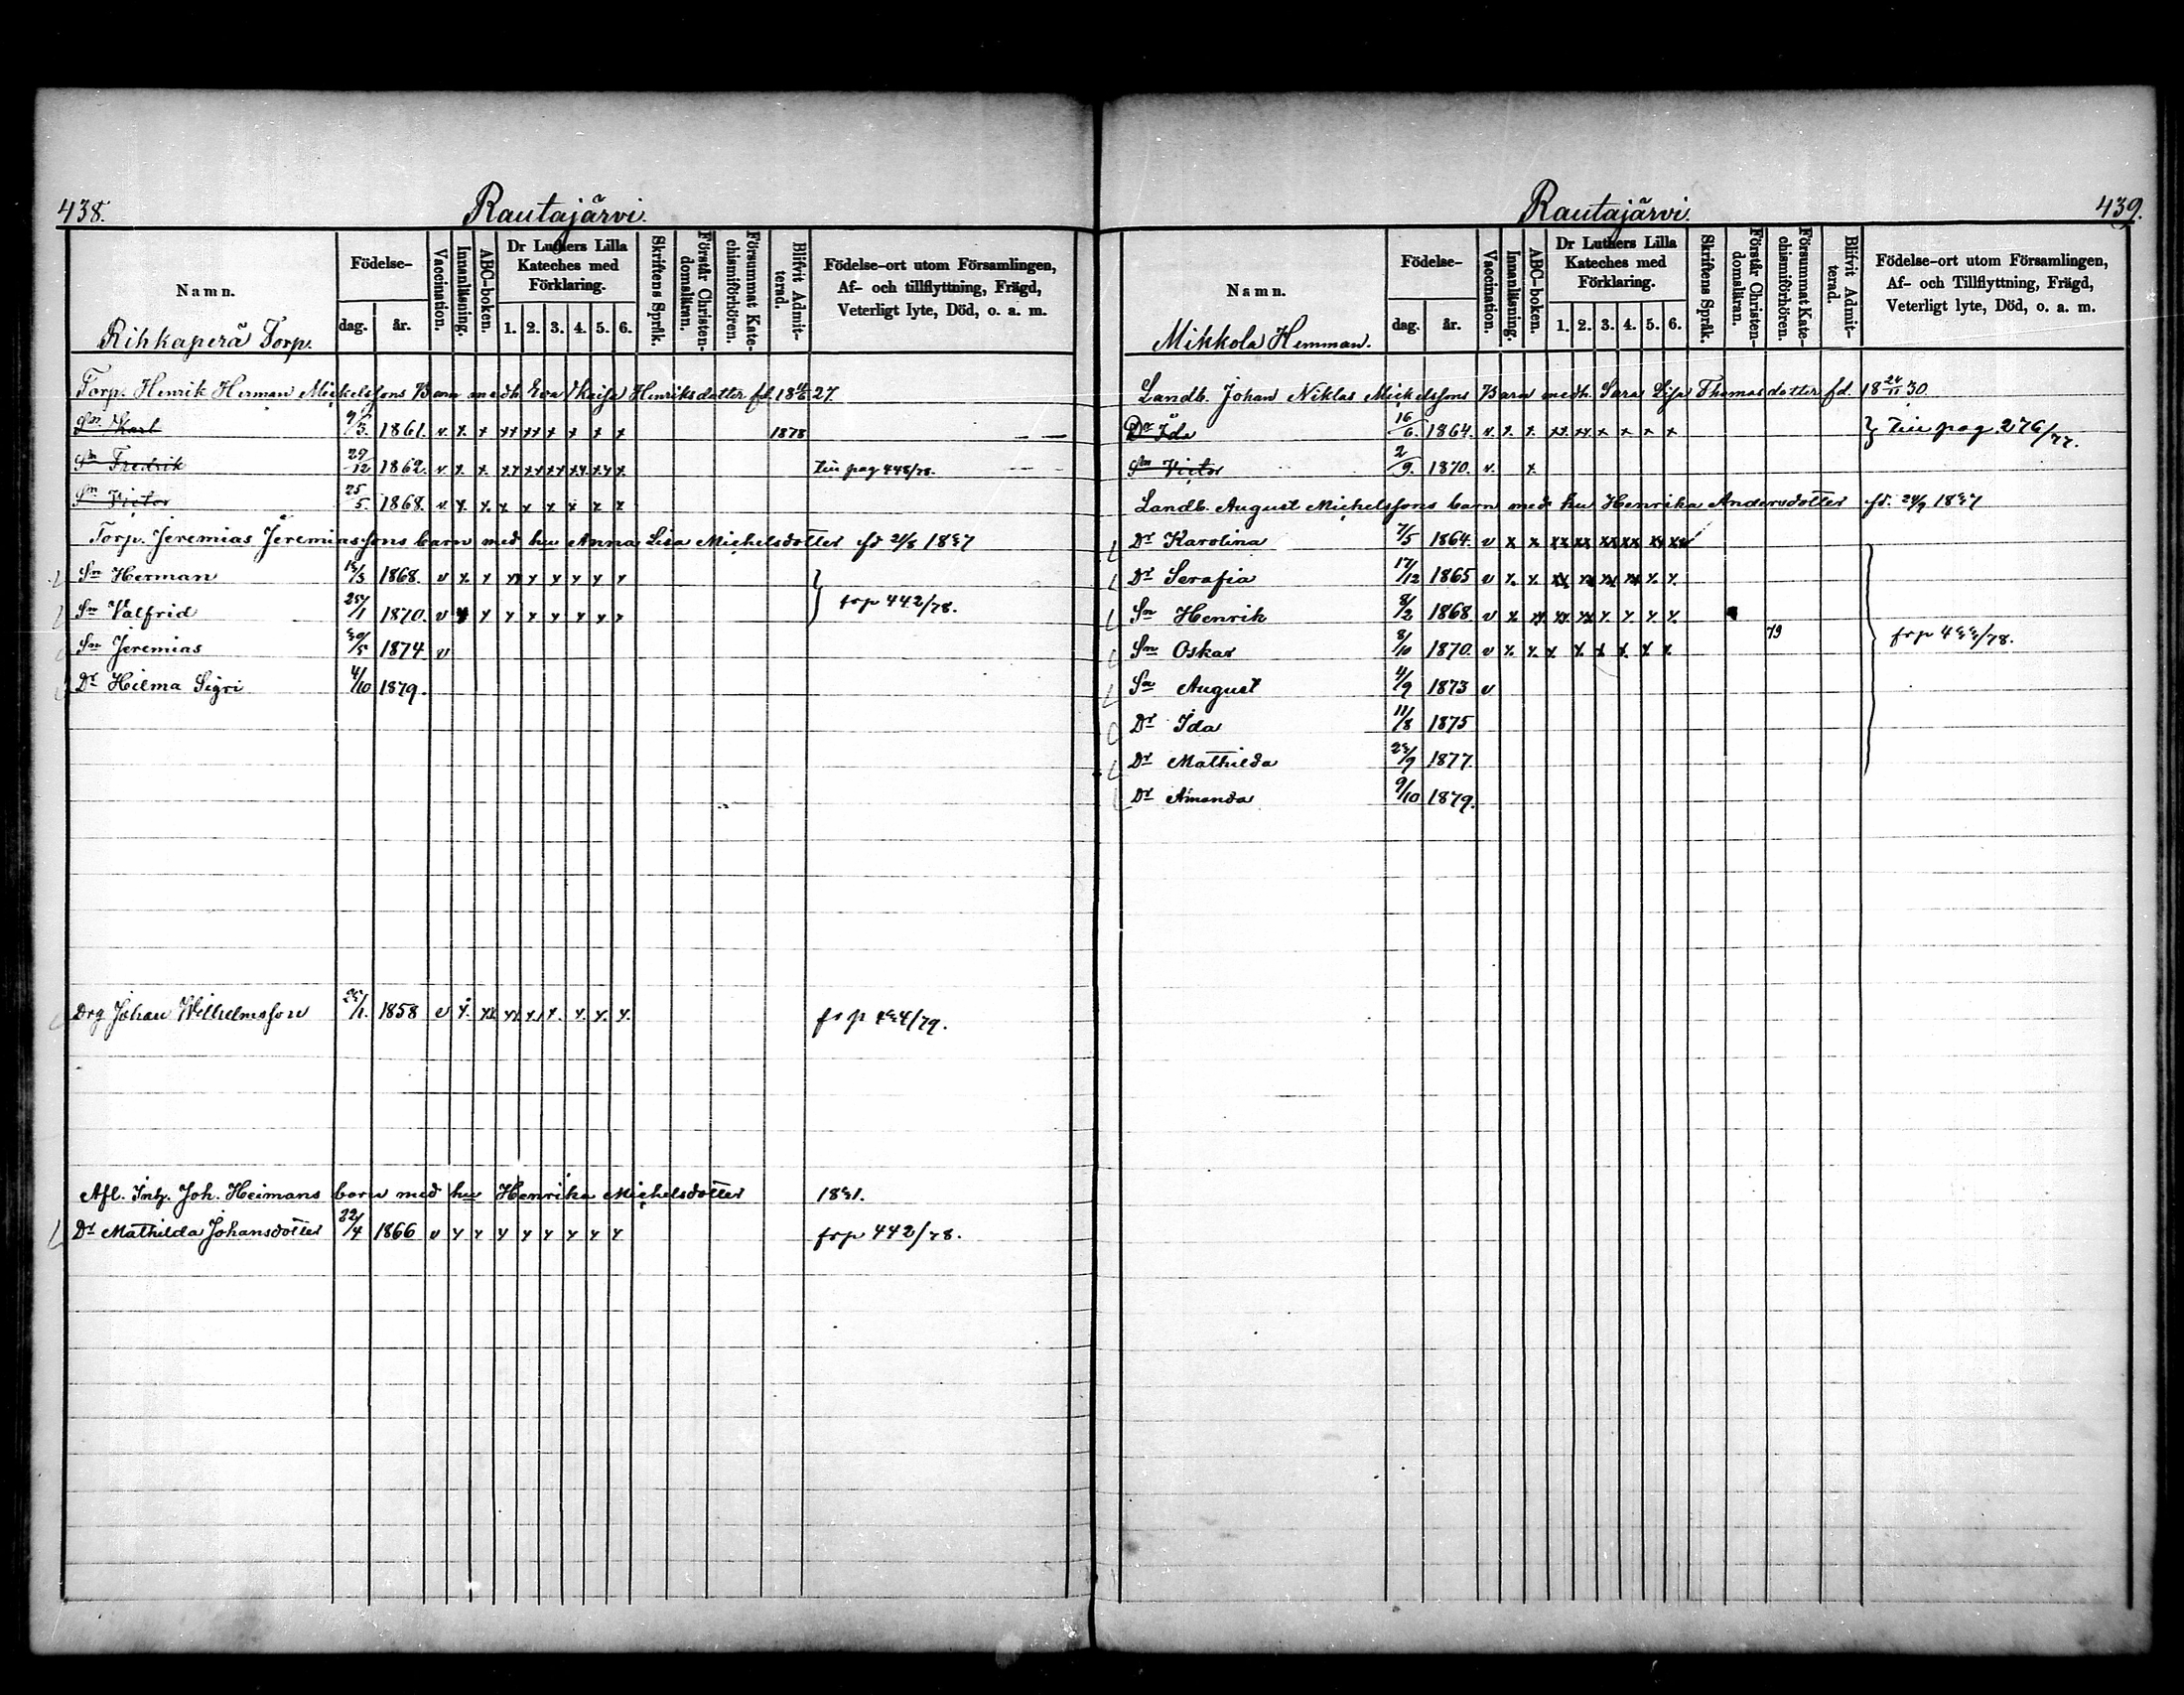 438. Rautajärvi.
Namn.
Rihkaperä Torp.
Födelse-
dag. år.
Vaccination.
Innanläsning.
ABC-boken.
Dr Luthers Lilla Kateches med Förklaring.
1. 2. 3. 4. 5. 6.
Skriftens Språk.
Förstår Christendomsläran.
Försummat Katechismiförhören.
Blifvit Admitterad.
Födelse-ort utom Församlingen,
Af- och tillflyttning, Frägd,
Veterligt lyte, Död, o. a. m.
Torp. Henrik Herman Mickelssons Barn medh. Eva Kaisa Henriksdotter fd. 27.
Sn Karl 9/3. 1861. v. x x xx xx x x x x 1878
Sn Fredrik 29/12 1862. v. x. x. xx xx xx xx xx x. Till pag 448/78.
Sn Victor 25/5. 1868. v. x. x x x x x x x
Torp. Jeremias Jeremiassons barn med hu Anna Lisa Michelsdotter fd 21/8 1837
Sn Herman 13/3 1868. v x x xx x x x x x
Sn Valfrid 25/1 1870. v x x x x x x x x frp 442/78.
Sn Jeremias 30/5 1874 v
Dr Hilma Sigri 4/10 1879.
Drg Johan Wilhelmsson 25/1. 1858 v x. xx xx x x. x. x. x. frp 434/79.
Afl. Inh. Joh. Heimans barn med hu Henrika Michelsdotter 1831.
Dr Mathilda Johansdotter 22/4 1866 v x x x x x x x x frp 442/78.
Rautajärvi. 439.
Namn.
Mikkola Hemman.
Födelse-
dag. år.
Vaccination.
Innanläsning.
ABC-boken.
Dr Luthers Lilla Kateches med Förklaring.
1. 2. 3. 4. 5. 6.
Skriftens Språk.
Förstår Christendomsläran.
Försummat Katechismiförhören.
Blifvit Admitterad.
Födelse-ort utom Församlingen,
Af- och Tillflyttning, Frägd,
Veterligt lyte, Död, o. a. m.
Landb. Johan Niklas Mickelssons Barn medh. Sara Lisa Thomasdotter fd. 18 24/11 30.
Dr Ida 16/6. 1864. v. x. x. xx xx. x x x x } Till pag. 276/77.
Sn Victor 2/9. 1870. v. x.
Landb. August Michelssons barn med hu Henrika Andersdotter fd. 24/9 1837
Dr Karolina 7/5 1864. v x x xx xx xx xx xx xx
Dr Serafia 17/12 1865 v x. x. xx xx xx xx x. x.
Sn Henrik 8/2 1868 v x xx xx. xx x. x x x
Sn Oskar 8/10 1870 v x. x. x. x x x. x x. 79 frp 433/78.
Sn August 4/9 1873 v
Dr Ida 11/8 1875
Dr Mathilda 23/9 1877.
Dr Amanda 9/10 1879.